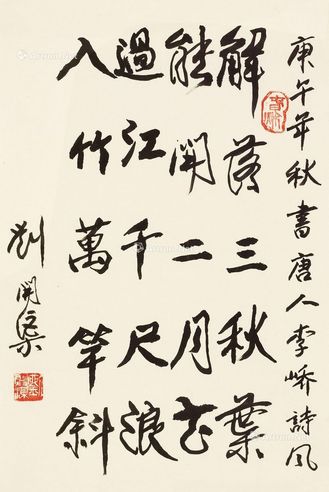 庚午年秋書唐人李嶠詩風
解落三秋葉
能開二月花
過江千尺浪
入竹萬竿斜
劉開渠